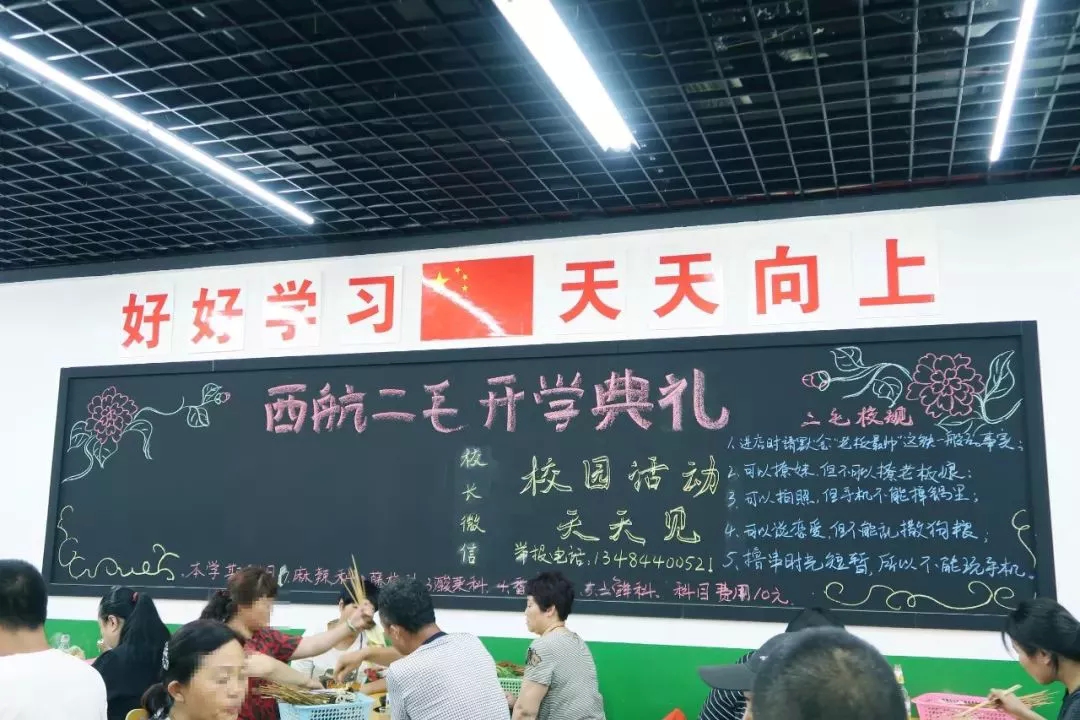 好好学习 天天向上
西航二毛 开学典礼
校长微信
校园活动
天天见
举报电话:13484400521
二毛校规
1.进店时请默念“老板最帅”这铁一般的事实;
2.可以撩妹,但不可以撩老板娘;
3.可以拍照,但手机不能掉锅里;
4.可以谈恋爱,但不能乱撒狗粮;
5.撸串时光短暂,所以不能玩手机。
本学期 麻辣科 3酸菜科、4. 5.三鲜科、科目费用10元.